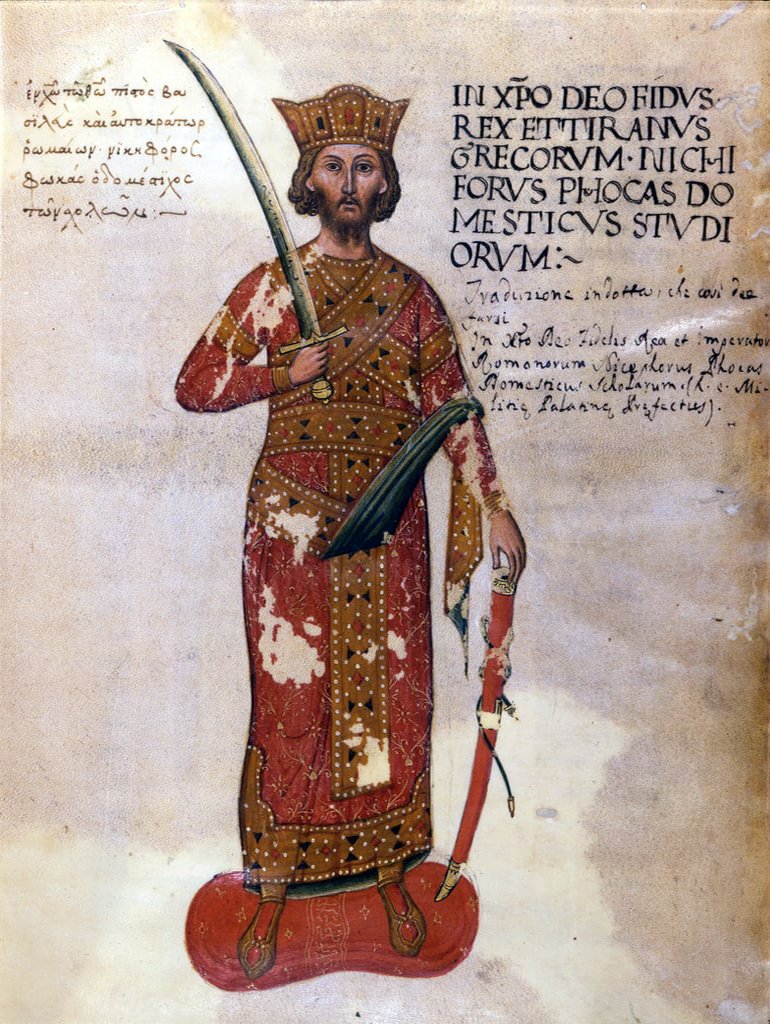 πιστὸς βα
σιλεὺς καὶ αὐτοκράτωρ
ῥωμαίων· νικηφόρος
φωκάς ὁ δομέστιχος
τῶν σχολῶν :~
IN XP̅O DEO FIDVS·
REX ET TIRANVS
GRECORVM· NICHI
FORVS PHOCAS DO
MESTICVS STVDI
ORVM:~
Traduzione indotta, che così dee
farsi
In Xto Deo Fidelis Rex et Imperator
Romanorum Nicephorus Phocas
Domesticus Scholarum (h. e. Mi-
litię Palatinę Prefectus).